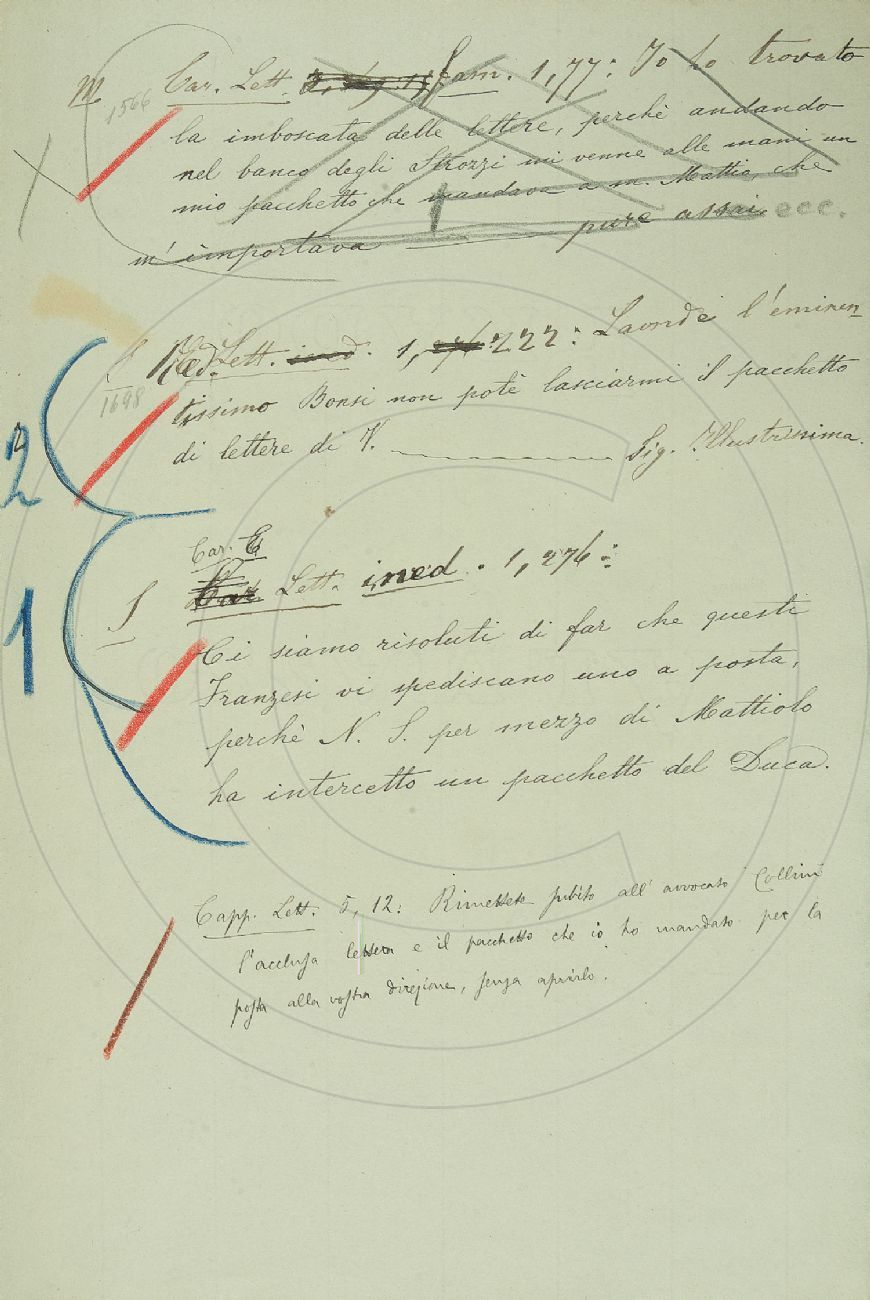 m 1566 Car. Lett. Fam. 1, 77: Io ho trovato
la imboscata delle lettere, perchè andando
nel banco degli Strozzi mi venne alle mani un
mio pacchetto che mandava a m. Mattio, che
m'importava pure assai ecc.
Red. Lett. ined. 1, 276 222: Laonde l'eminen
1698 tissimo Bonsi non potè lasciarmi il pacchetto
di lettere di V. Sig. Illustrissima.
2
Car. E
Car Lett. ined. 1, 276:
1
Ci siamo risoluti di far che questi
Franzesi vi spediscano uno a posta,
perchè N. S. per mezzo di Mattiolo
ha intercetto un pacchetto del Duca.
Capp. Lett. 5, 12: Rimettete subito all'avvocato Collini
l'acclusa lettera e il pacchetto che io ho mandato per la
posta alla vostra direzione, senza aprirlo.